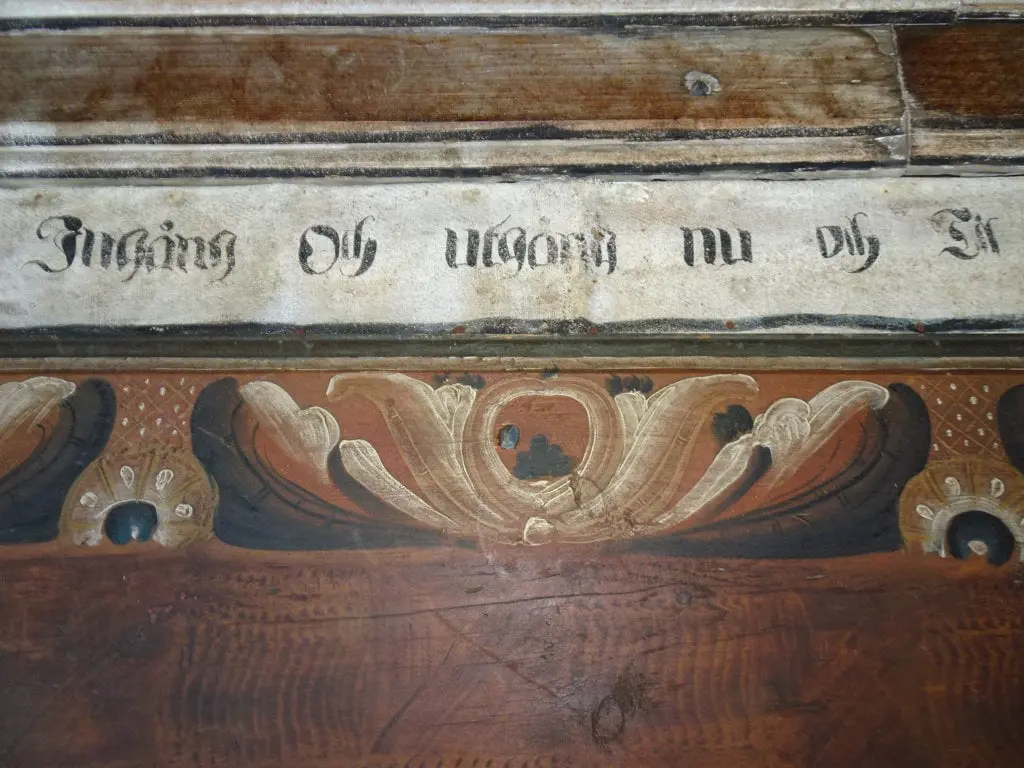 Jngång Och utgång nu och Til